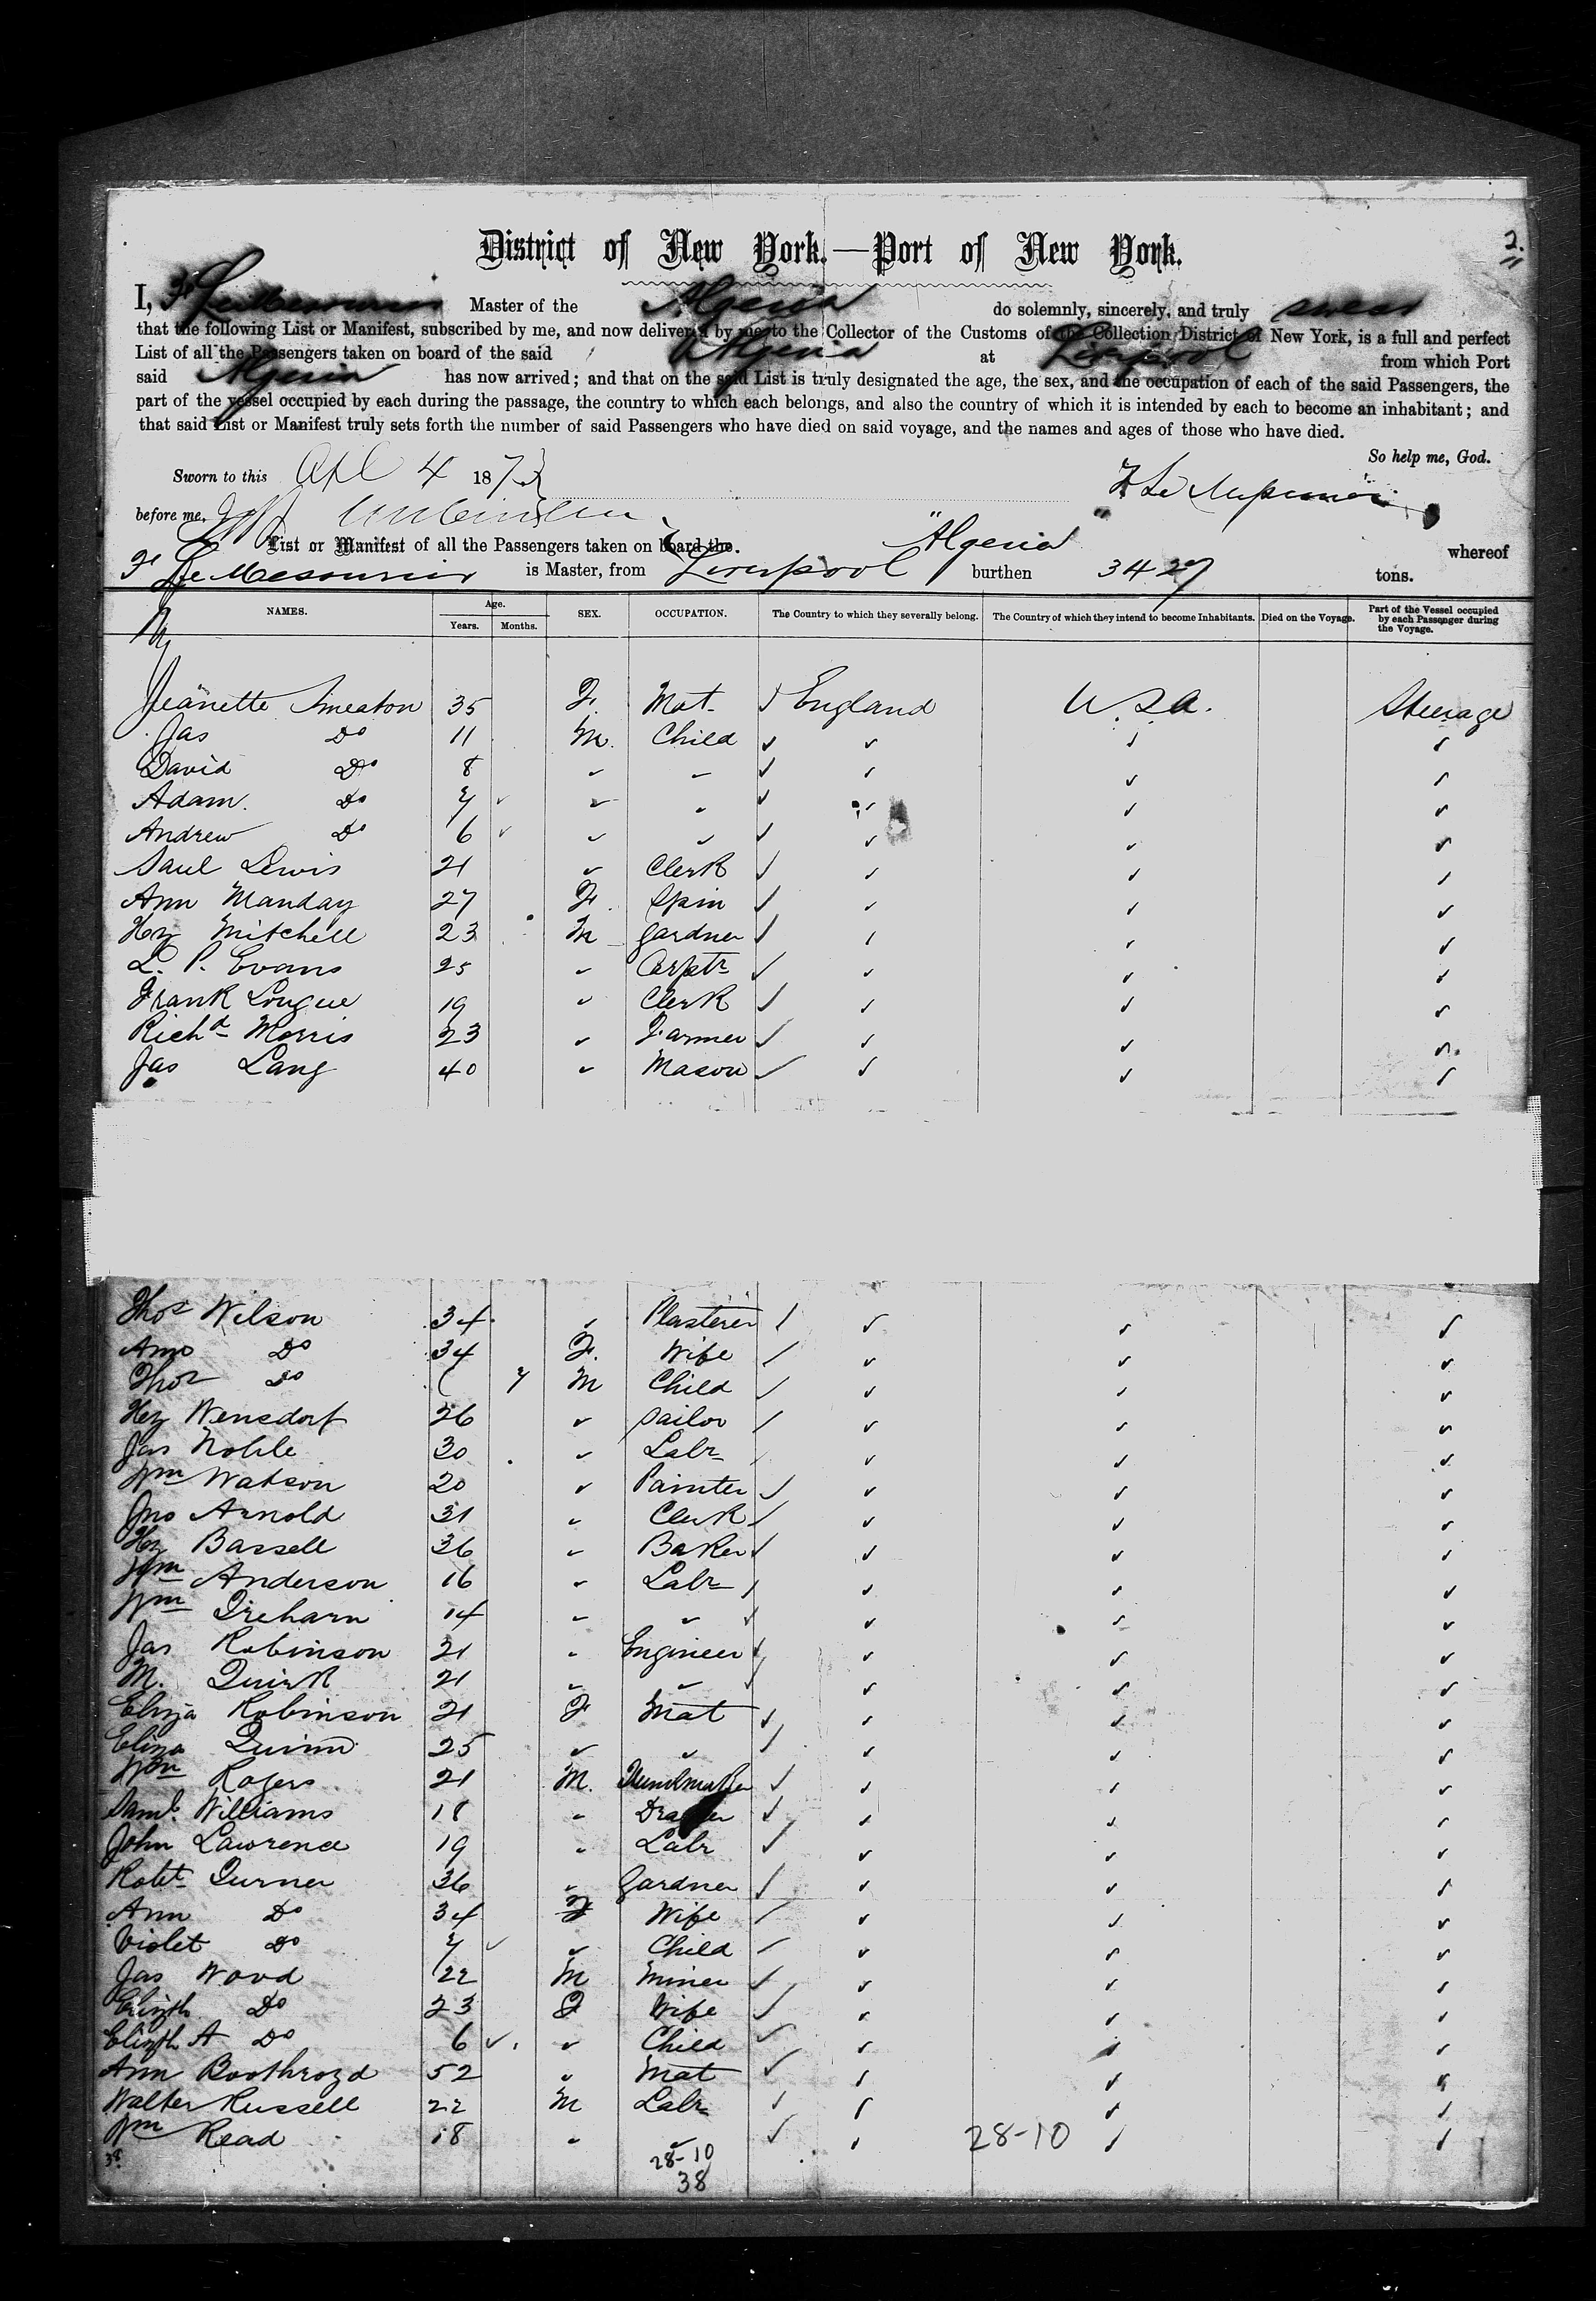 District of New York.—Port of New York.
2.
I, F Le Mesurier Master of the Algeria do solemnly, sincerely, and truly swear
that the following List or Manifest, subscribed by me, and now delivered by me to the Collector of the Customs of the Collection District of New York, is a full and perfect
List of all the Passengers taken on board of the said Algeria at Liverpool from which Port
said Algeria has now arrived; and that on the said List is truly designated the age, the sex, and the occupation of each of the said Passengers, the
part of the vessel occupied by each during the passage, the country to which each belongs, and also the country of which it is intended by each to become an inhabitant; and
that said List or Manifest truly sets forth the number of said Passengers who have died on said voyage, and the names and ages of those who have died.
So help me, God.
Sworn to this Apl 4 1873
before me,
List or Manifest of all the Passengers taken on board the "Algeria" whereof
F Le Mesourier is Master, from Liverpool burthen 3429 tons.
NAMES. Age. Years. Months. SEX. OCCUPATION. The Country to which they severally belong. The Country of which they intend to become Inhabitants. Died on the Voyage. Part of the Vessel occupied by each Passenger during the Voyage.
Jeanette Smeaton 35 F. Mat. ✓ England U.S.A. Steerage
Jas Do 11 M. Child ✓ ✓ ✓ ✓
David Do 8 ✓ ✓ ✓ ✓ ✓ ✓
Adam. Do 7 ✓ ✓ ✓ ✓ ✓ ✓ ✓
Andrew Do 6 ✓ ✓ ✓ ✓ ✓ ✓ ✓
Saul Lewis 21 ✓ Clerk ✓ ✓ ✓ ✓
Ann Manday 27 F. Spin ✓ ✓ ✓ ✓
Hy Mitchell 23 M gardner ✓ ✓ ✓ ✓
L. P. Evans 25 ✓ Carptr ✓ ✓ ✓ ✓
Frank Longue 19 ✓ Clerk ✓ ✓ ✓ ✓
Richd Morris 23 ✓ Farmer ✓ ✓ ✓ ✓
Jas Lang 40 ✓ Mason ✓ ✓ ✓ ✓
Thos Wilson 34 ✓ Plasterer ✓ ✓ ✓ ✓
Ann Do 34 F. Wife ✓ ✓ ✓ ✓
Thos Do 7 M Child ✓ ✓ ✓ ✓
Hy Wensdorf 26 ✓ Sailor ✓ ✓ ✓ ✓
Jas Noble 30 ✓ Labr ✓ ✓ ✓ ✓
Wm Watson 20 ✓ Painter ✓ ✓ ✓ ✓
Jno Arnold 31 ✓ Clerk ✓ ✓ ✓ ✓
Hy Bassell 36 ✓ Baker ✓ ✓ ✓ ✓
Wm Anderson 16 ✓ Labr ✓ ✓ ✓ ✓
Wm Treharn 14 ✓ ✓ ✓ ✓ ✓ ✓
Jas Robinson 21 ✓ Engineer ✓ ✓ ✓ ✓
M. Quirk 21 ✓ ✓ ✓ ✓ ✓ ✓
Eliza Robinson 21 F Mat ✓ ✓ ✓ ✓
Eliza Quinn 25 ✓ ✓ ✓ ✓ ✓ ✓
Wm Rogers 21 M. ✓ ✓ ✓ ✓
Saml. Williams 18 ✓ Draper ✓ ✓ ✓ ✓
John Lawrence 19 ✓ Labr ✓ ✓ ✓ ✓
Robt Turner 36 ✓ gardner ✓ ✓ ✓ ✓
Ann Do 34 F Wife ✓ ✓ ✓ ✓
Violet Do 7 ✓ ✓ Child ✓ ✓ ✓ ✓
Jas Wood 22 M Miner ✓ ✓ ✓ ✓
Elizth Do 23 F Wife ✓ ✓ ✓ ✓
Elizth A Do 6 ✓ ✓ Child ✓ ✓ ✓ ✓
Ann Boothroyd 52 ✓ Mat ✓ ✓ ✓ ✓
Walter Russell 22 M Labr ✓ ✓ ✓ ✓
Wm Read 18 ✓ ✓ ✓ ✓ 28-10 ✓ ✓
38 28-10
38